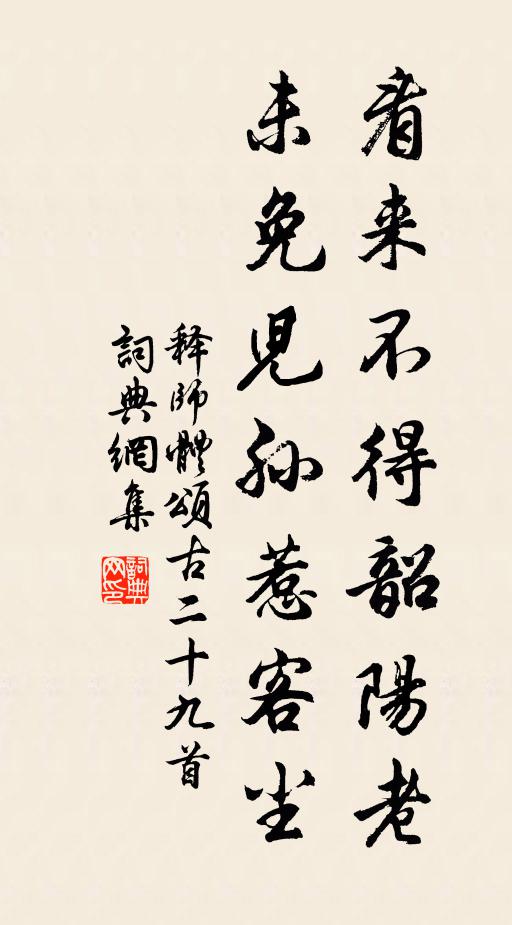 看来不得韶陽老
未免児孙惹客尘
释師體頌古二十九首
詞典網集
詞典网印